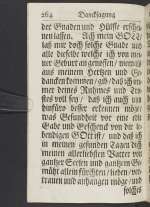 264 Dancksagung
der Gnaden und Hülffe erschei-
nen lassen. Ach mein GOTT/
laß mir doch solche Gnade und
alle dieselbe welche ich von mei-
ner Geburt an genossen/ niemals
aus meinem Hertzen und Ge-
dancken kommen/ daß ich im-
mer deines Ruhmes und Tro-
stes voll sey/ daß ich auch
hinführo besser erkennen möge/
was Gesundheit vor eine ein
Gabe und Geschenck von dir le-
bendigen GOtt ist/ und daß ich
in meinen gesunden Tagen dich
meinen allerliebsten Vater von
gantzer Seelen und gantzen Ge-
müht allein fürchten/ lieben/ ver-
trauen und anhangen möge/ und
solches